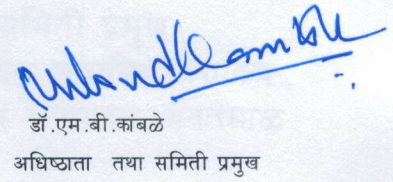 डॉ.एम.बी.कांबळे
अधिष्ठाता तथा समिती प्रमुख